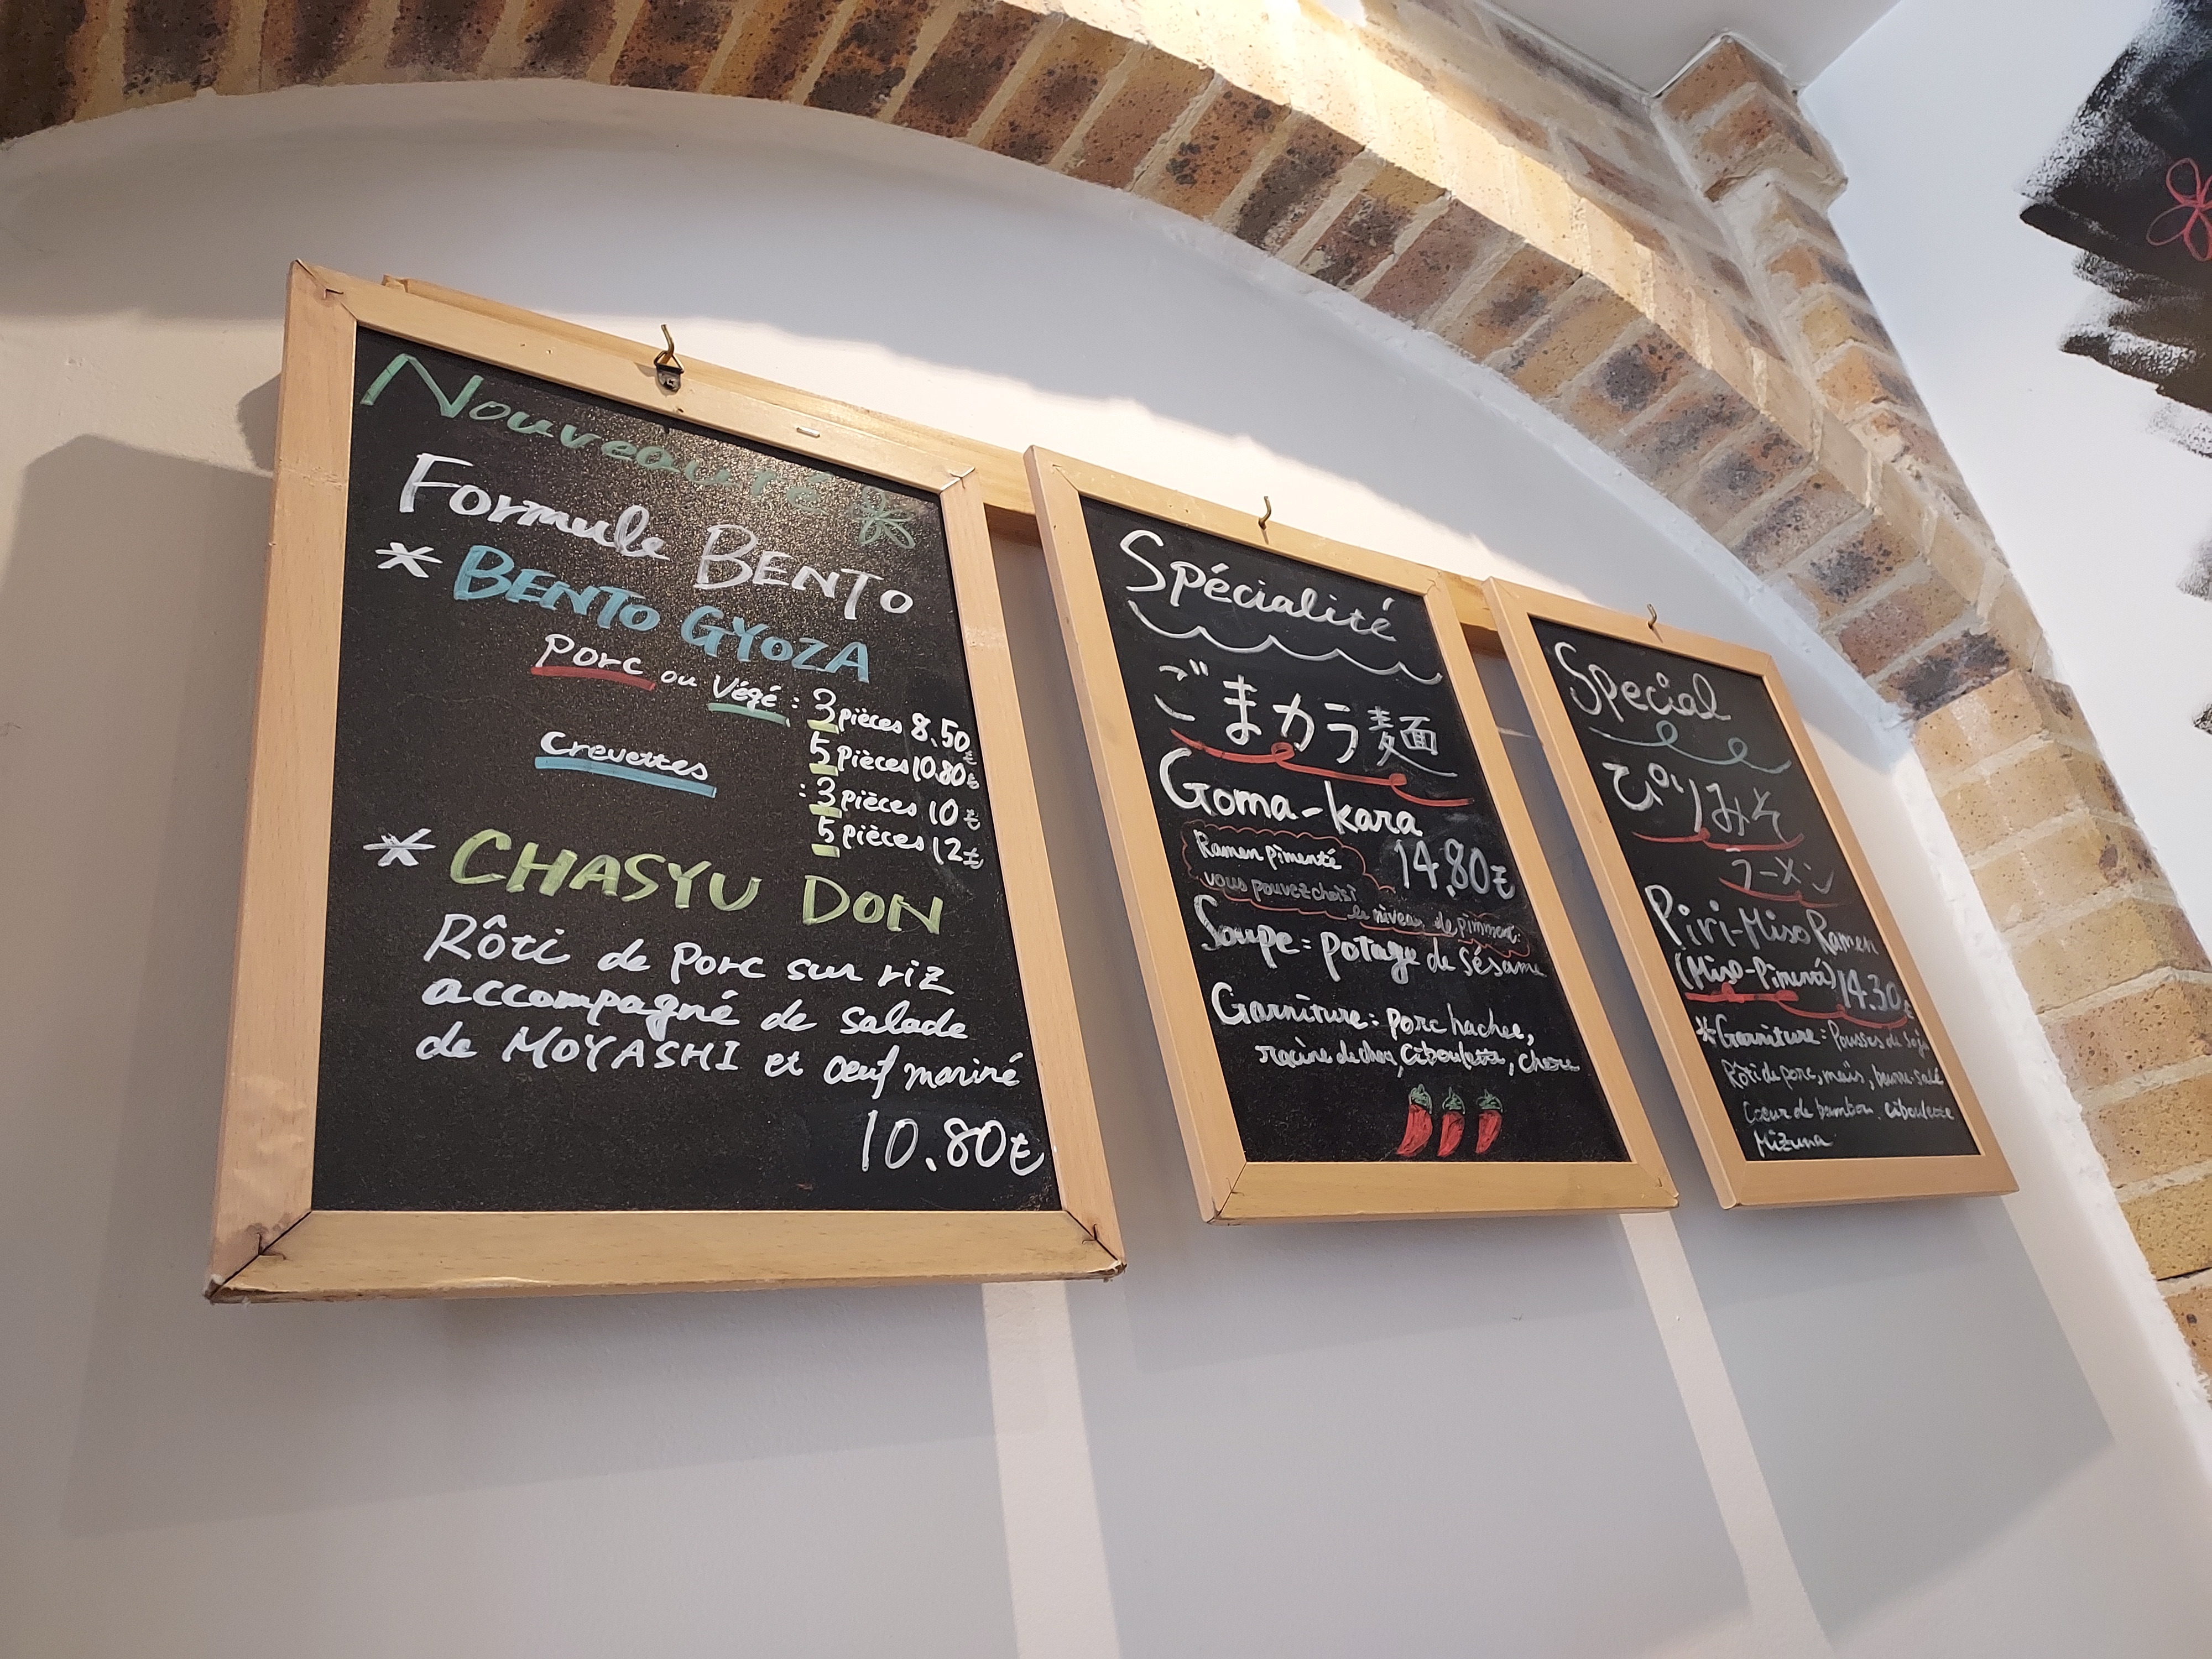 Nouveauté
Formule BENTO
* BENTO GYOZA
Porc ou Végé : 3 pièces 8.50€
5 pièces 10.80€
Crevettes : 3 pièces 10€
5 pièces 12€
* CHASYU DON
Rôti de porc sur riz
accompagné de salade
de MOYASHI et oeuf mariné
10.80€
Spécialité
ごまカラ麺
Goma-kara
Ramen pimenté 14.80€
vous pouvez choisi
le niveau de
Soupe : potage de sésame
Garniture : porc hachee,
racine de ciboulette,
Special
ぴりみそ
ラーメン
Piri-Miso Ramen
(Miso-Pimenté) 14.30€
*Garniture : Pousses de Soja
Rôti de porc, maïs, beurre-salé
Coeur de bambou. ciboulette
Mizuna